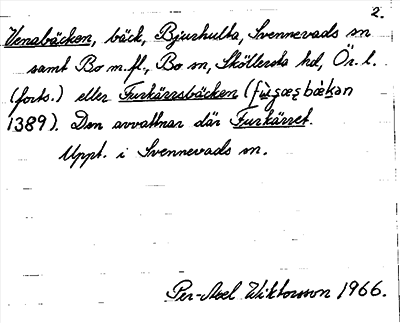 2.
Venabäcken, bäck, Bjurhulta, Svennevads sn
samt Bo m.fl., Bo sn, Sköllersta hd, Ör. l.
(forts.) eller Furkärrsbäcken (
1389). Den avvattnar där Furkärret.
Uppt. i Svennevads sn.
Per-Axel Wiktorsson 1966.